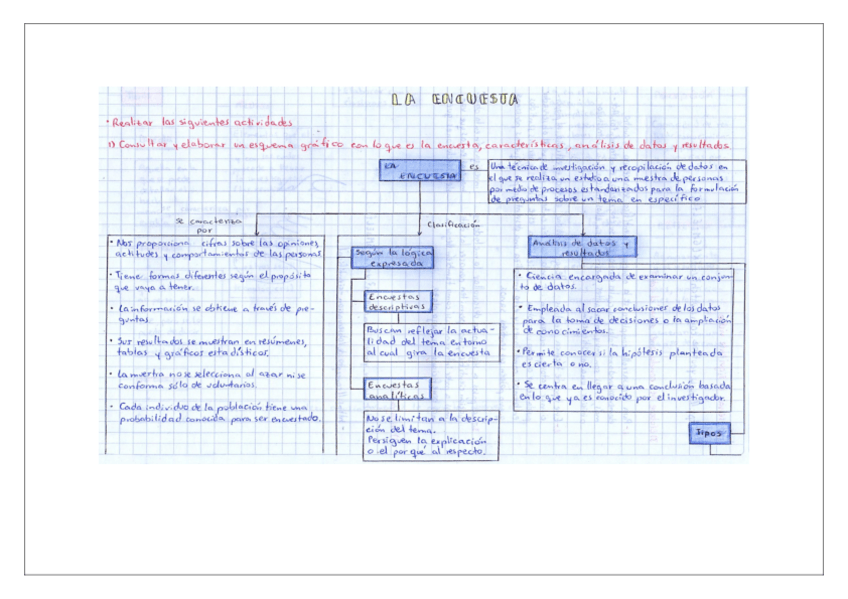 LA ENCUESTA
• Realizar las siguientes actividades
1) Consultar y elaborar un esquema gráfico con lo que es la encuesta, características, análisis de datos y resultados.
LA
ENCUESTA
es
Una técnica de investigación y recopilación de datos en
el que se realiza un estudio a una mestra de personas
por medio de procesos estandarizados para la formulación
de preguntas sobre un tema en específico
Se caracteriza
por
• Nos proporciona cifras sobre las opiniones,
actitudes y comportamientos de las personas
• Tiene formas diferentes según el propósito
que vaya a tener.
• La información se obtiene a través de pre-
guntas.
• Sus resultados se muestran en resúmenes,
tablas y gráficos estadísticos.
• La muestra no se selecciona al azar ni se
conforma sólo de voluntarios.
• Cada individuo de la población tiene una
probabilidad conocida para ser encuestado.
Clasificación
Según la lógica
expresada
Encuestas
descriptivas
Buscan reflejar la actua-
lidad del tema entorno
al cual gira la encuesta
Encuestas
analíticas
No se limitan a la descrip-
ción del tema.
Persiguen la explicación
o el por qué al respecto.
Análisis de datos y
resultados
• Ciencia encargada de examinar un conjun-
to de datos.
• Empleada al sacar conclusiones de los datos
para la toma de decisiones o la ampliación
de conocimientos.
• Permite conocer si la hipótesis planteada
es cierta o no.
• Se centra en llegar a una conclusión basada
en lo que ya es conocido por el investigador.
Tipos